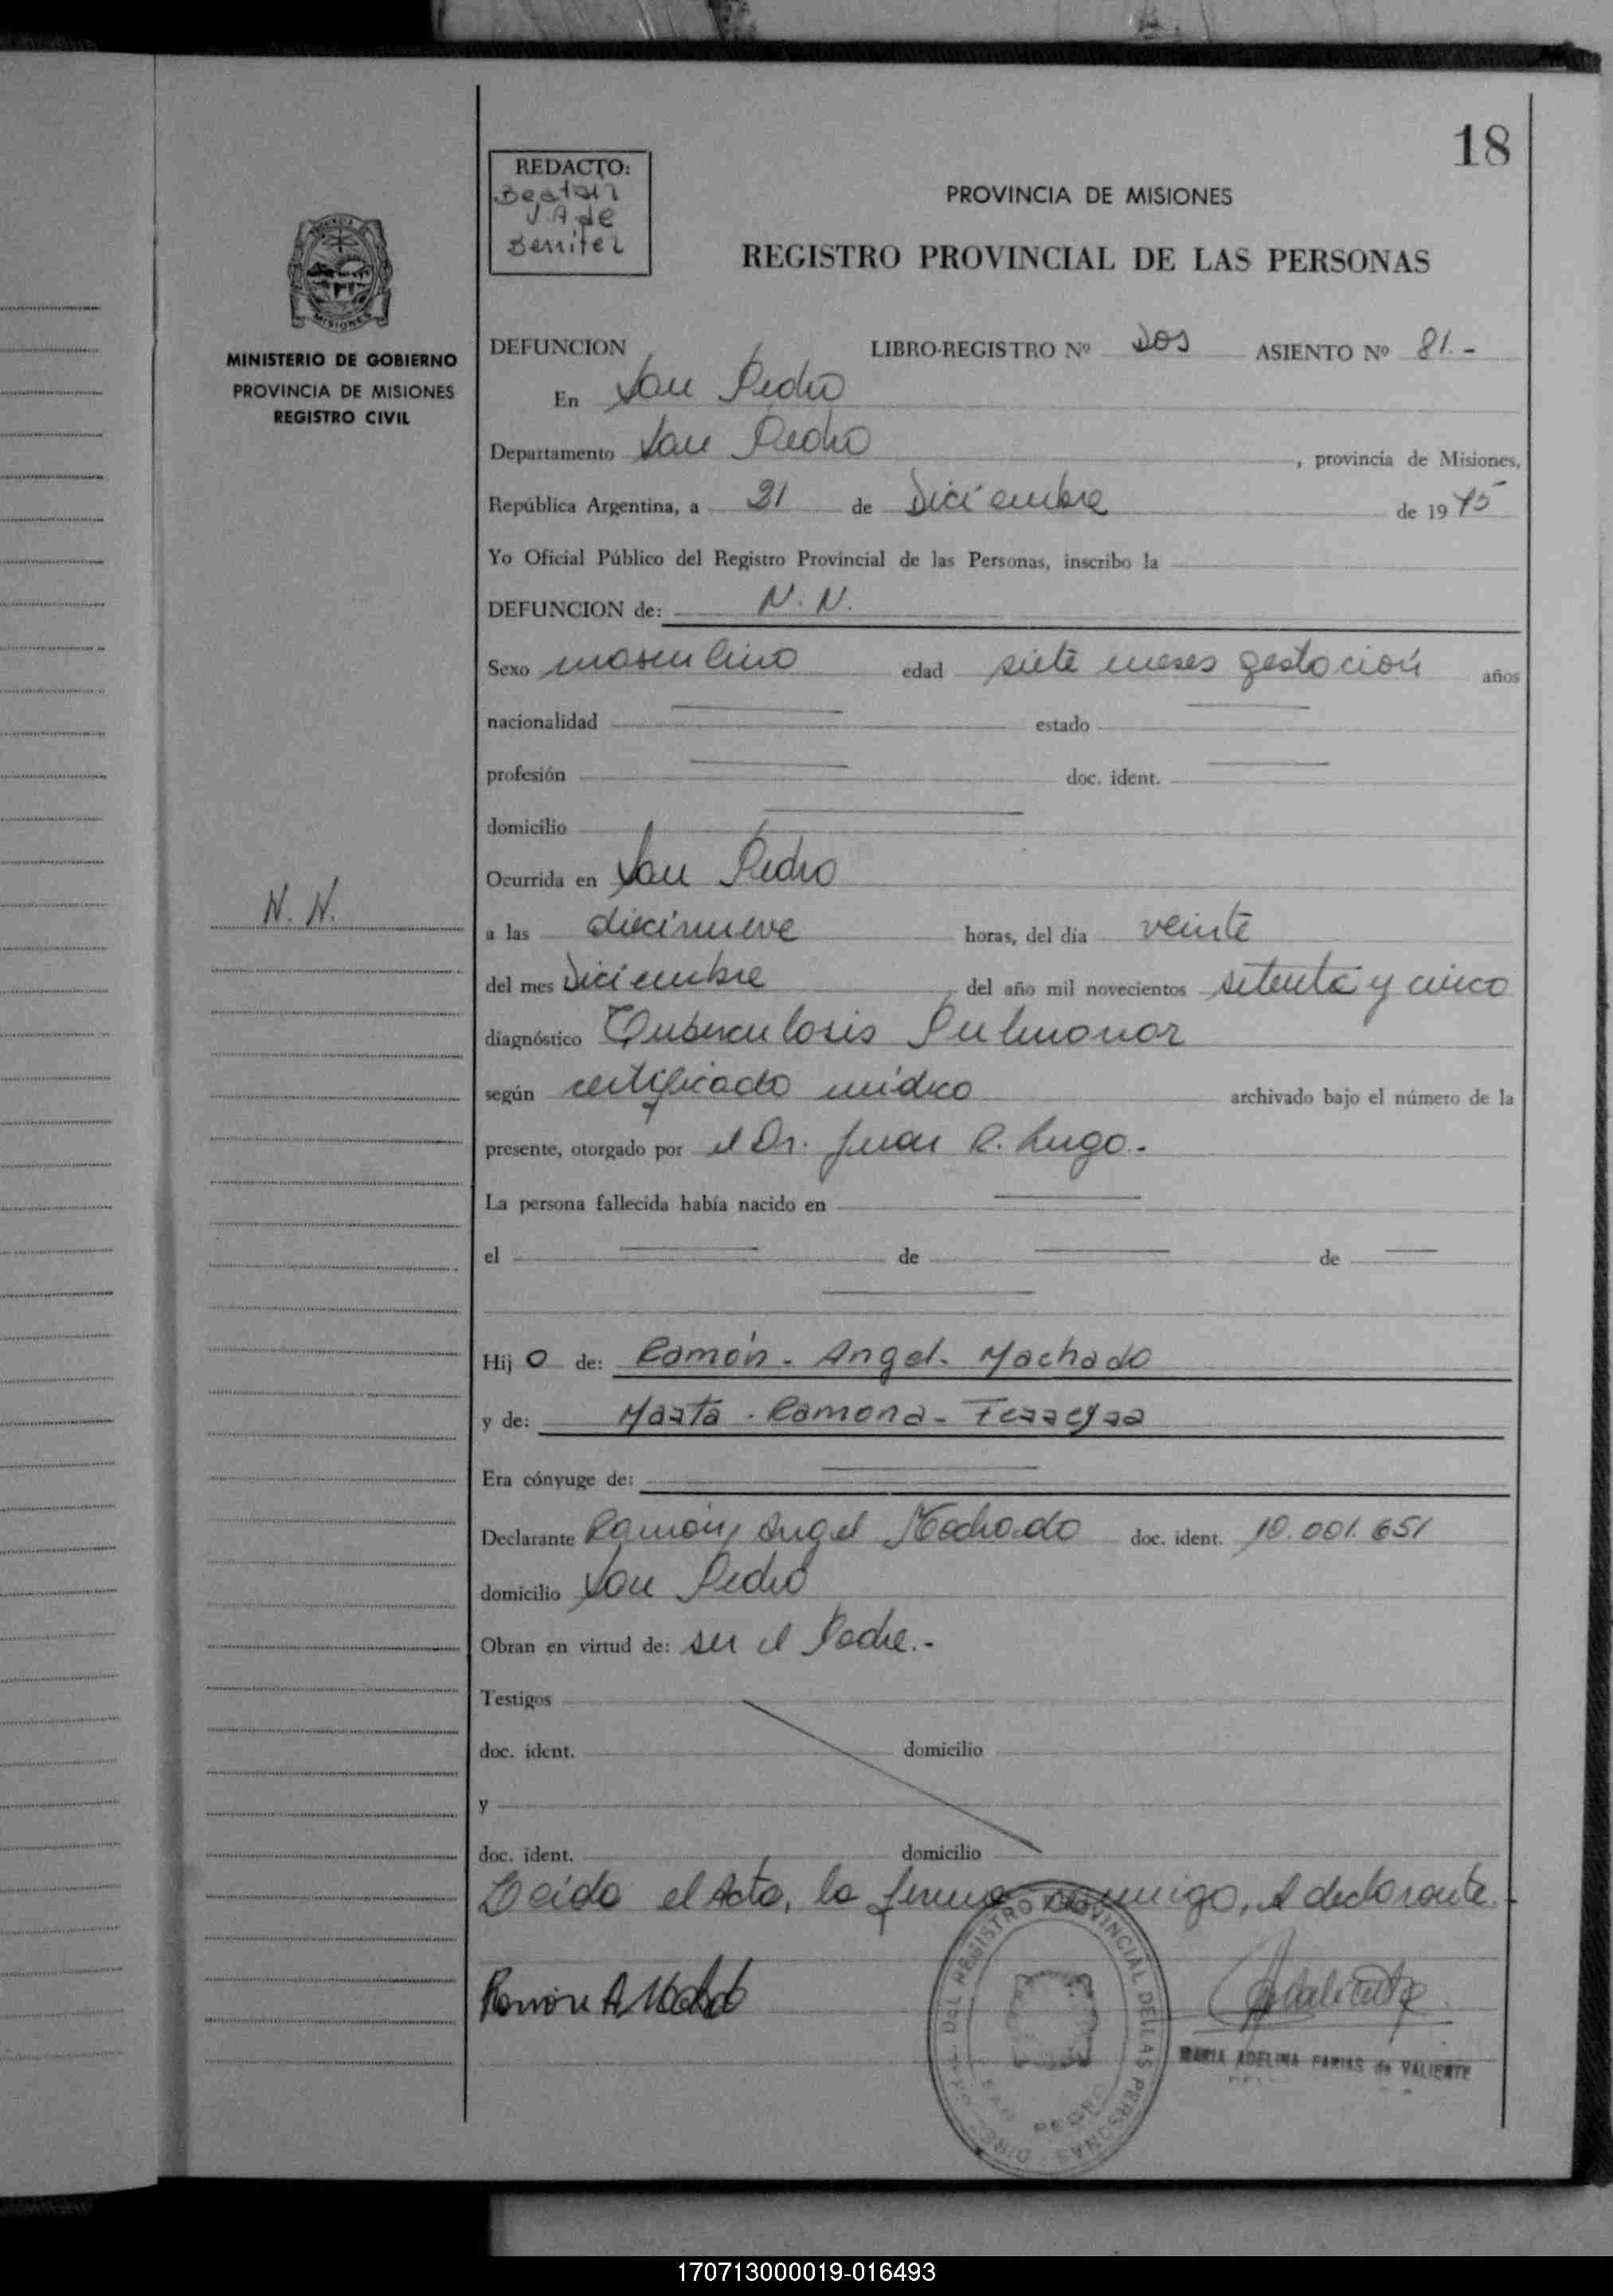 18
REDACTO:
Beatriz
V.A. de
Benitez
PROVINCIA DE MISIONES
REGISTRO PROVINCIAL DE LAS PERSONAS
MISIONES
MINISTERIO DE GOBIERNO
PROVINCIA DE MISIONES
REGISTRO CIVIL
DEFUNCION LIBRO-REGISTRO Nº Dos ASIENTO Nº 81.-
En San Pedro
Departamento San Pedro, provincia de Misiones,
República Argentina, a 21 de Diciembre de 1975
Yo Oficial Público del Registro Provincial de las Personas, inscribo la
DEFUNCION de: N. N.
Sexo masculino edad siete meses gestación años
nacionalidad estado
profesión doc. ident.
domicilio
Ocurrida en San Pedro
N. N.
a las diecinueve horas, del dia veinte
del mes Diciembre del año mil novecientos setenta y cinco
diagnóstico Tuberculosis Pulmonar
según certificado médico archivado bajo el número de la
presente, otorgado por el Dr. Juan R. Lugo.-
La persona fallecida había nacido en
el de de
Hijo de: Ramón - Angel - Machado
y de: Marta - Ramona - Ferreyra
Era cónyuge de:
Declarante Ramón Angel Machado doc. ident. 10.001.651
domicilio San Pedro
Obran en virtud de: ser el Padre.-
Testigos
doc. ident. domicilio
y
doc. ident. domicilio
Leida el Acta, la firma conmigo, el declarante.-
Ramon A Machado
DEL REGISTRO PROVINCIAL DE LAS PERSONAS
SAN PEDRO
MARIA ADELINA FARIAS de VALIENTE
170713000019-016493